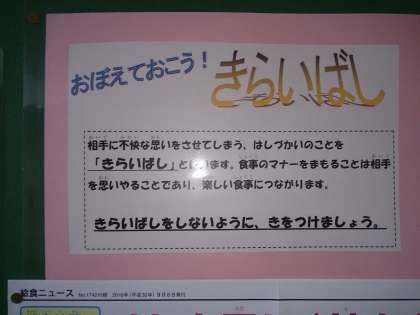 おぼえておこう！
きらいばし
相手に不快な思いをさせてしまう、はしづかいのことを
「きらいばし」といいます。食事のマナーをまもることは相手
を思いやることであり、楽しい食事につながります。
きらいばしをしないように、きをつけましょう。
給食ニュース No.1742付録 2018年（平成30年）9月8日発行